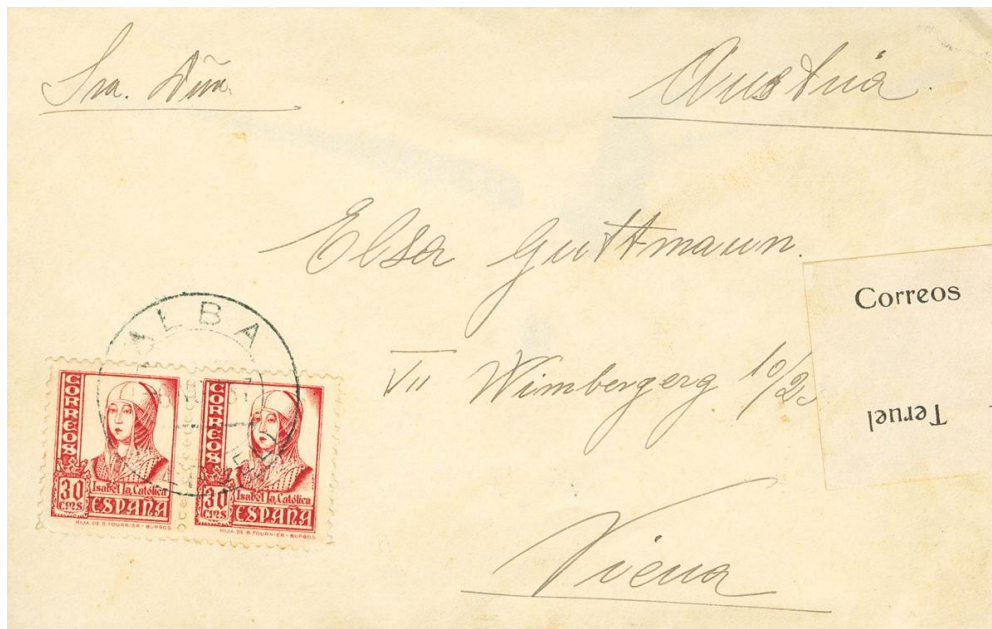 Sra. Dña.
Austria.
Elsa Guttmann.
VII Wimbergerg 10/2
Viena
Correos
Teruel
ALBA
TERUEL
CORREOS
30
CMS
Isabel la Católica
ESPAÑA
HIJA DE B. FOURNIER - BURGOS
CORREOS
30
CMS
Isabel la Católica
ESPAÑA
HIJA DE B. FOURNIER - BURGOS